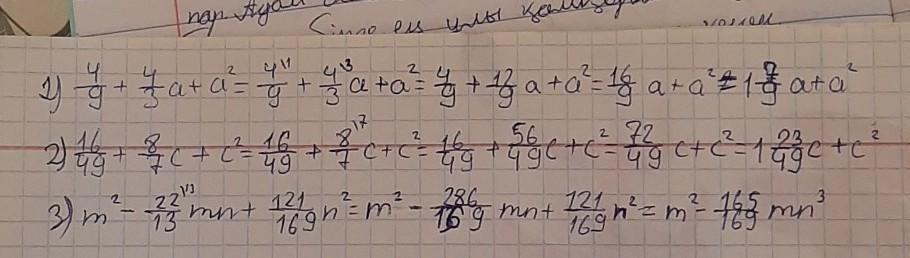 1) 4/9 + 4/3 a + a² = 4\1/9 + 4\3/3 a + a² = 4/9 + 12/9 a + a² = 16/9 a + a² = 1 7/9 a + a²
2) 16/49 + 8/7 c + c² = 16/49 + 8\7/7 c + c² = 16/49 + 56/49 c + c² = 72/49 c + c² = 1 23/49 c + c²
3) m² - 22\13/13 mn + 121/169 n² = m² - 286/169 mn + 121/169 n² = m² - 165/169 mn³